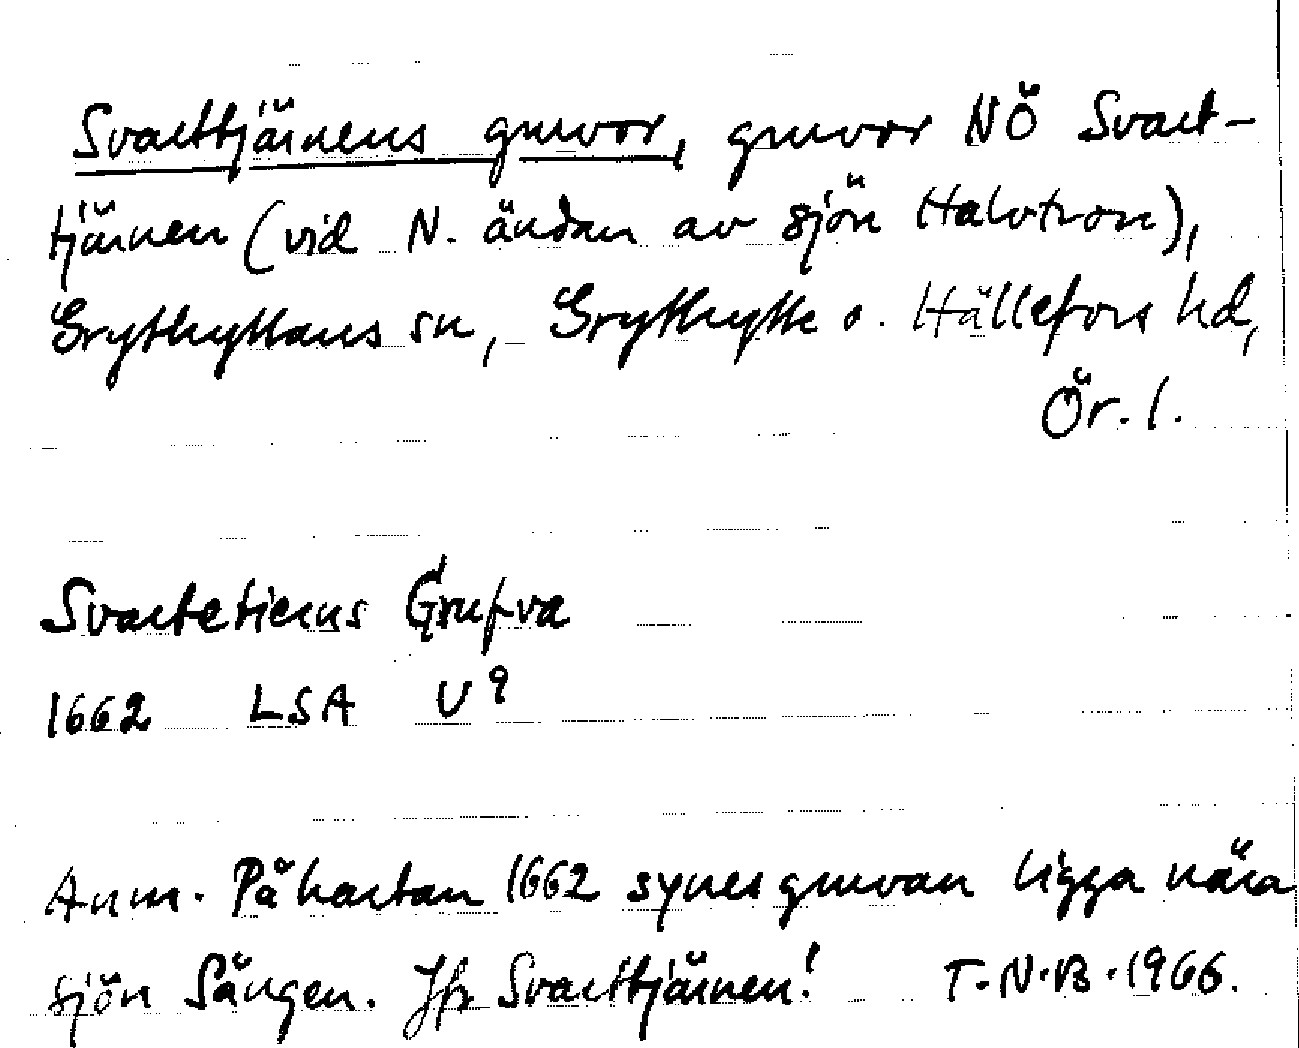 Svarttjärnens gruvor, gruvor NÖ Svart-
tjärnen (vid N. ändan av sjön Halvtron),
Grythyttans sn, Grythytte o. Hällefors hd,
Ör. l.
Svartetierns Grufva
1662 LSA U9
Anm. På kartan 1662 synes gruvan ligga nära
sjön Sången. Jfr Svarttjärnen! T.N.B. 1966.